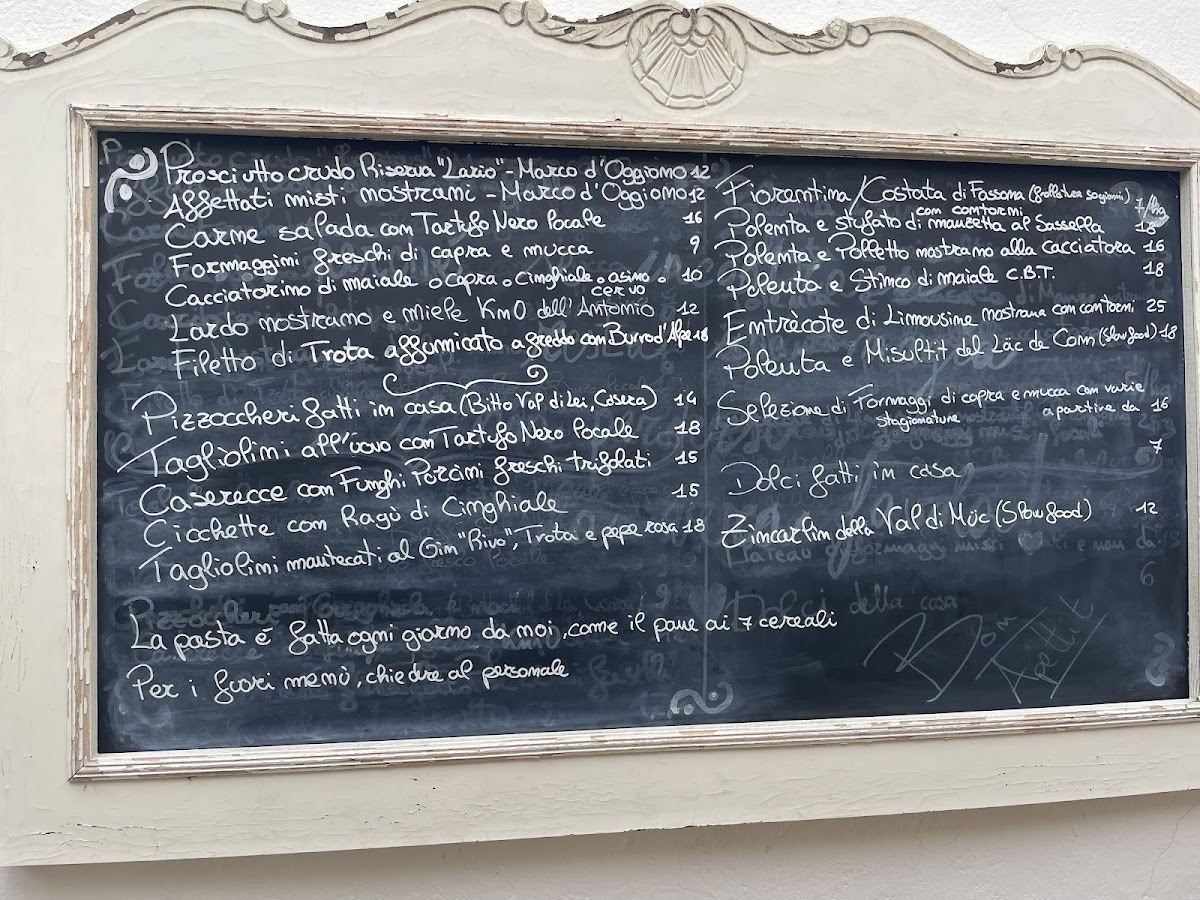 Prosciutto crudo Riserva "Lario" - Marco d'Oggiono 12
Affettati misti nostrani - Marco d'Oggiono 12
Carne salada con Tartufo Nero locale 16
Formaggini freschi di capra e mucca 9
Cacciatorino di maiale o capra o cinghiale o asino o cervo 10
Lardo nostrano e miele Km0 dell'Antonio 12
Filetto di Trota affumicato a freddo con Burro d'Alpe 18
Pizzoccheri fatti in casa (Bitto Val di Lei, Casera) 14
Tagliolini all'uovo con Tartufo Nero locale 18
Caserecce con Funghi Porcini freschi trifolati 15
Cicchette con Ragù di Cinghiale 15
Tagliolini mantecati al Gin "Rivo", Trota e pepe rosa 18
La pasta è fatta ogni giorno da noi, come il pane ai 7 cereali
Per i fuori menù, chiedere al personale
Fiorentina/Costata di Fassona
con contorni
Polenta e stufato di manzetta al Sassella 18
Polenta e Polletto nostrano alla cacciatora 16
Polenta e Stinco di maiale C.B.T. 18
Entrècote di Limousine nostrana con contorni 25
Polenta e Misultit del Läc de Comm (slow food) 18
Selezione di Formaggi di capra e mucca con varie
stagionature a partire da 16
Dolci fatti in casa 7
Zincarlin della Val di Müc (Slow food) 12
Dolci della casa 6
Bon
Apetit